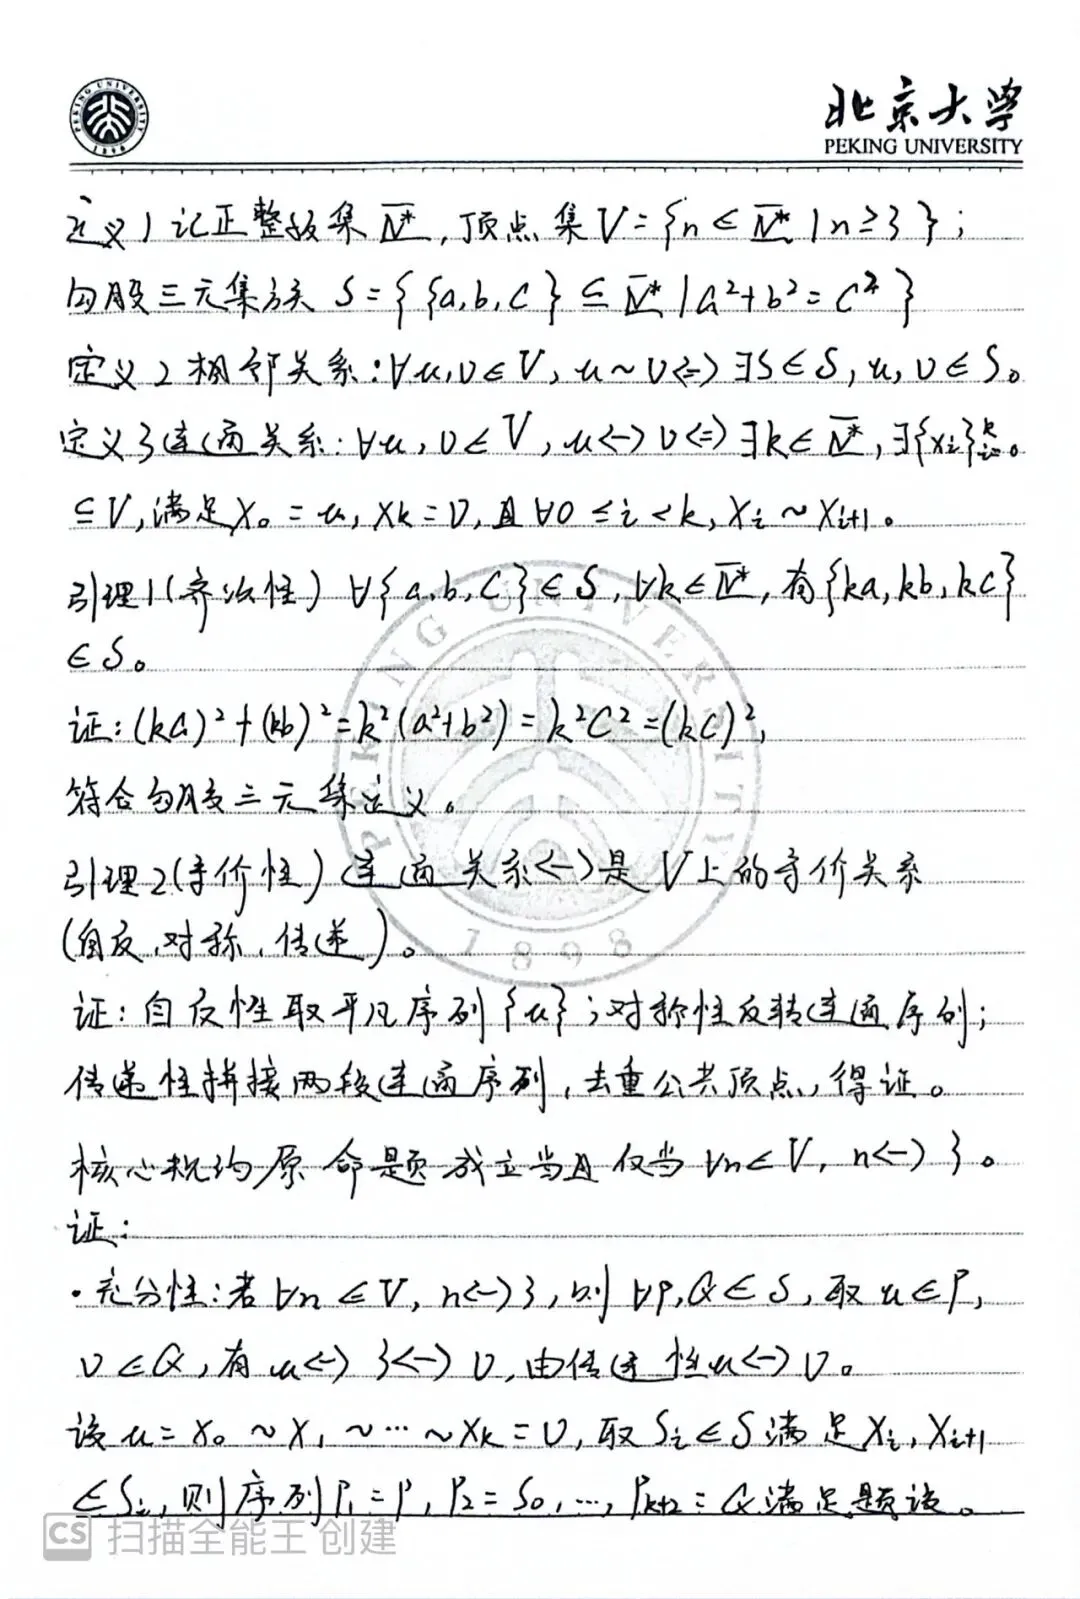 北京大学
PEKING UNIVERSITY
定义1 记正整数集 N*, 顶点集 V={n∈N*|n≥3};
勾股三元集族 S={{a,b,c}⊆N*|a²+b²=c²}
定义2 相邻关系:∀u,v∈V, u~v⇔∃S∈S, u,v∈S。
定义3 连通关系:∀u,v∈V, u↔v⇔∃k∈N*,∃{xᵢ}ᵏᵢ₌₀
⊆V,满足x₀=u, xₖ=v,且∀0≤i<k, xᵢ~xᵢ₊₁。
引理1(齐次性) ∀{a,b,c}∈S,∀k∈N*,有{ka,kb,kc}
∈S。
证:(ka)²+(kb)²=k²(a²+b²)=k²c²=(kc)²,
符合勾股三元集定义。
引理2(等价性) 连通关系↔是V上的等价关系
(自反,对称,传递)。
证:自反性取平凡序列{u};对称性反转连通序列;
传递性拼接两段连通序列,去重公共顶点,得证。
核心规约 原命题成立当且仅当∀n∈V, n↔3。
证:
·充分性:若∀n∈V, n↔3,则∀P,Q∈S,取u∈P,
v∈Q,有u↔3↔v,由传递性u↔v。
设u=x₀~x₁~…~xₖ=v,取Sᵢ∈S满足xᵢ,xᵢ₊₁
∈Sᵢ,则序列P₁=P,P₂=S₀,…,Pₖ₊₂=Q满足题设。
PEKING UNIVERSITY
1898
CS 扫描全能王 创建